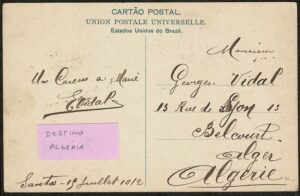 CARTÃO POSTAL.
UNION POSTALE UNIVERSELLE.
Estados Unidos do Brazil.
Monsieur
Georges Vidal
13 Rue de Lyon 13
Belcourt
Alger
Algérie
Un Caresse a Mané
EVidal
DESTINO
ALGERIA
Santos 19 Juillet 1912